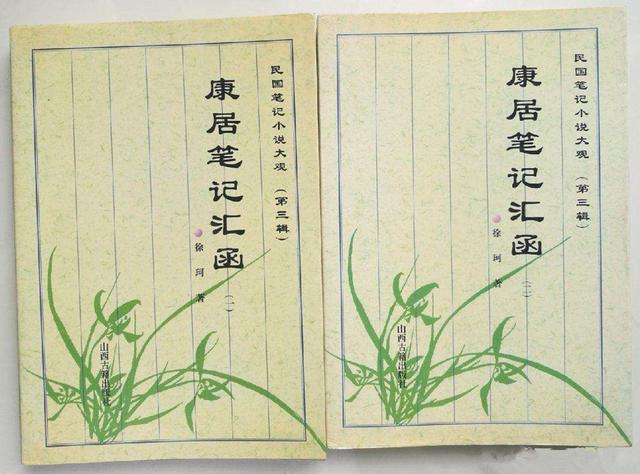 民国笔记小说大观（第三辑）
康居笔记汇函（一）
徐珂著
山西古籍出版社
民国笔记小说大观（第三辑）
康居笔记汇函（二）
徐珂著
山西古籍出版社